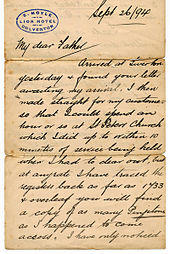 T. MOYLE
LION HOTEL
DULVERTON
Sept 26/94
My dear Father
Arrived at Tiverton
yesterday & found your letter
awaiting my arrival. I then
made straight for my customers
so that I could spend an
hour or so at St Peters Church
which I did up to within 10
minutes of service being held
when I had to clear out, but
at anyrate I have traced the
registers back as far as 1733
& overleaf you will find
a copy of as many
as I happened to come
across. I have only noticed